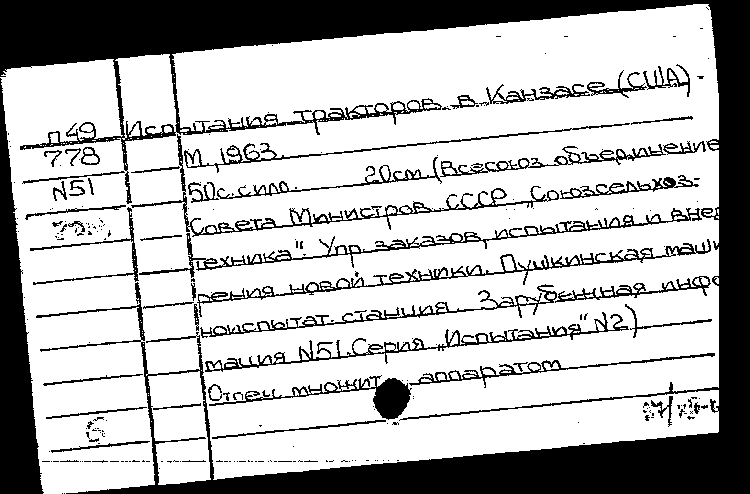 п49 Испытания тракторов в Канзасе (США) -
778 М., 1963.
N51 50с. с илл. 20см. (Всесоюз. объединение
Совета Министров СССР „Союзсельхоз-
техника". Упр. заказов, испытания и внед
рения новой техники. Пушкинская маши
ноиспытат. станция. Зарубежная инфо
мация N51. Серия „Испытания" N2)
Отпеч. множит. аппаратом
6